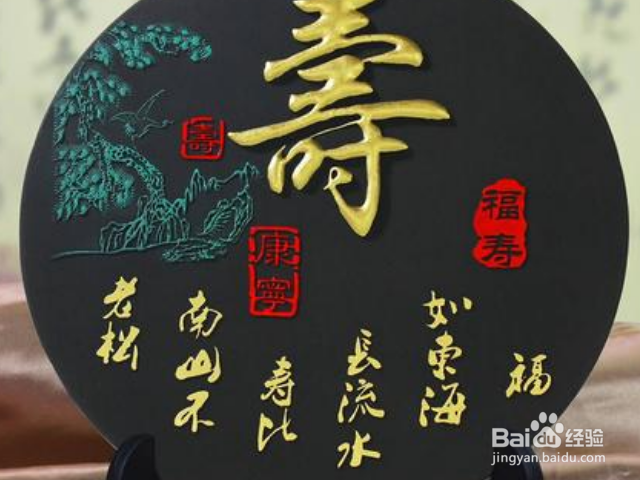 壽
壽
康寧
福寿
福
如东海
長流水
寿比
南山不
老松
Baidu经验
jingyan.baidu.com